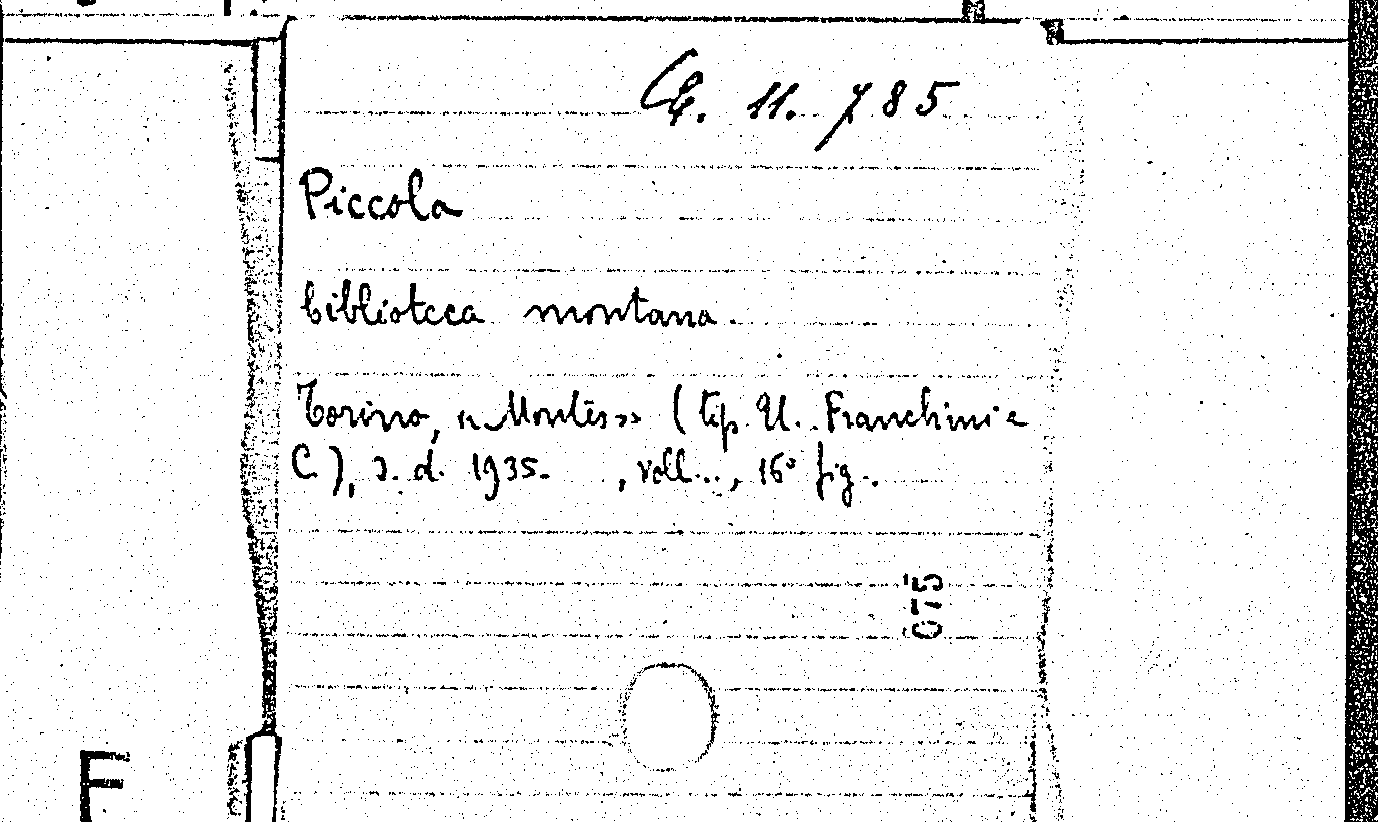 11. 785
Piccola
biblioteca montana.
Torino, «Montes» (tip. U. Franchini e
C.), s. d. 1935. , voll..., 16° fig..
075
F